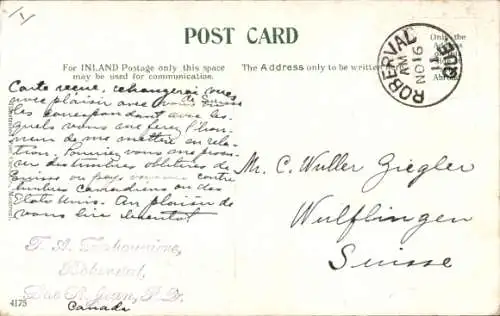 POST CARD
For INLAND Postage only this space
may be used for communication.
The Address only to be written
Only the
ROBERVAL
QUE
AM
NO 16
11
Carte reçue, échangerai
avec plaisir avec vous
les correspondant avec les-
quels vous me ferez l'hon-
neur de me mettre en rela-
tion. Pourriez vous me
des timbres oblitérés de
Suisse ou pays contre
timbres canadiens ou des
Etats Unis. Au plaisir de
vous lire bientôt
Mr. C. Wuller Ziegler
Wulflingen
Suisse
T. A.
Roberval,
Lac St. Jean, P. Q.
Canada
4175